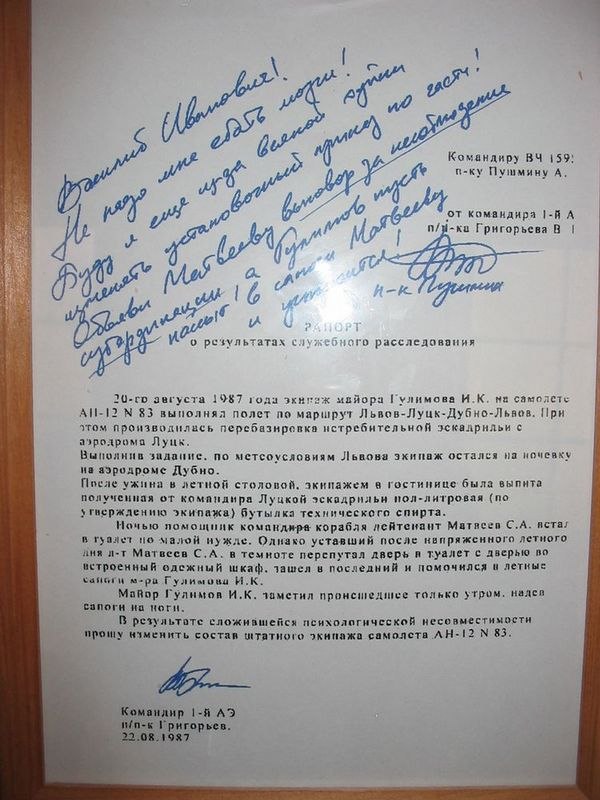 Василий Иванович!
Не надо мне ебать мозги!
Буду я еще из-за всякой хуйни
изменять установочный приказ по части!
Объяви Матвееву выговор за несоблюдение
субординации а Гулимов пусть
нассыт в сапоги Матвееву
и успокоится!
п-к Пушмин
Командиру ВЧ 1592
п-ку Пушмину А.
от командира 1-й А
п/п-ка Григорьева В
РАПОРТ
о результатах служебного расследования
20-го августа 1987 года экипаж майора Гулимова И.К. на самолете
АН-12 N 83 выполнял полет по маршрут Львов-Луцк-Дубно-Львов. При
этом производилась перебазировка истребительной эскадрильи с
аэродрома Луцк.
Выполнив задание, по метеоусловиям Львова экипаж остался на ночевку
на аэродроме Дубно.
После ужина в летной столовой, экипажем в гостинице была выпита
полученная от командира Луцкой эскадрильи пол-литровая (по
утверждению экипажа) бутылка технического спирта.
Ночью помощник командира корабля лейтенант Матвеев С.А. встал
в туалет по малой нужде. Однако уставший после напряженного летного
дня л-т Матвеев С.А. в темноте перепутал дверь в туалет с дверью во
встроенный одежный шкаф, зашел в последний и помочился в летные
сапоги м-ра Гулимова И.К.
Майор Гулимов И.К. заметил происшедшее только утром, надев
сапоги на ноги.
В результате сложившейся психологической несовместимости
прошу изменить состав штатного экипажа самолета АН-12 N 83.
Командир 1-й АЭ
п/п-к Григорьев.
22.08.1987